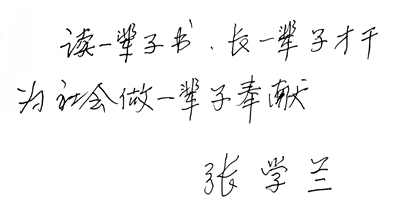 读一辈子书、长一辈子才干
为社会做一辈子奉献
张学兰